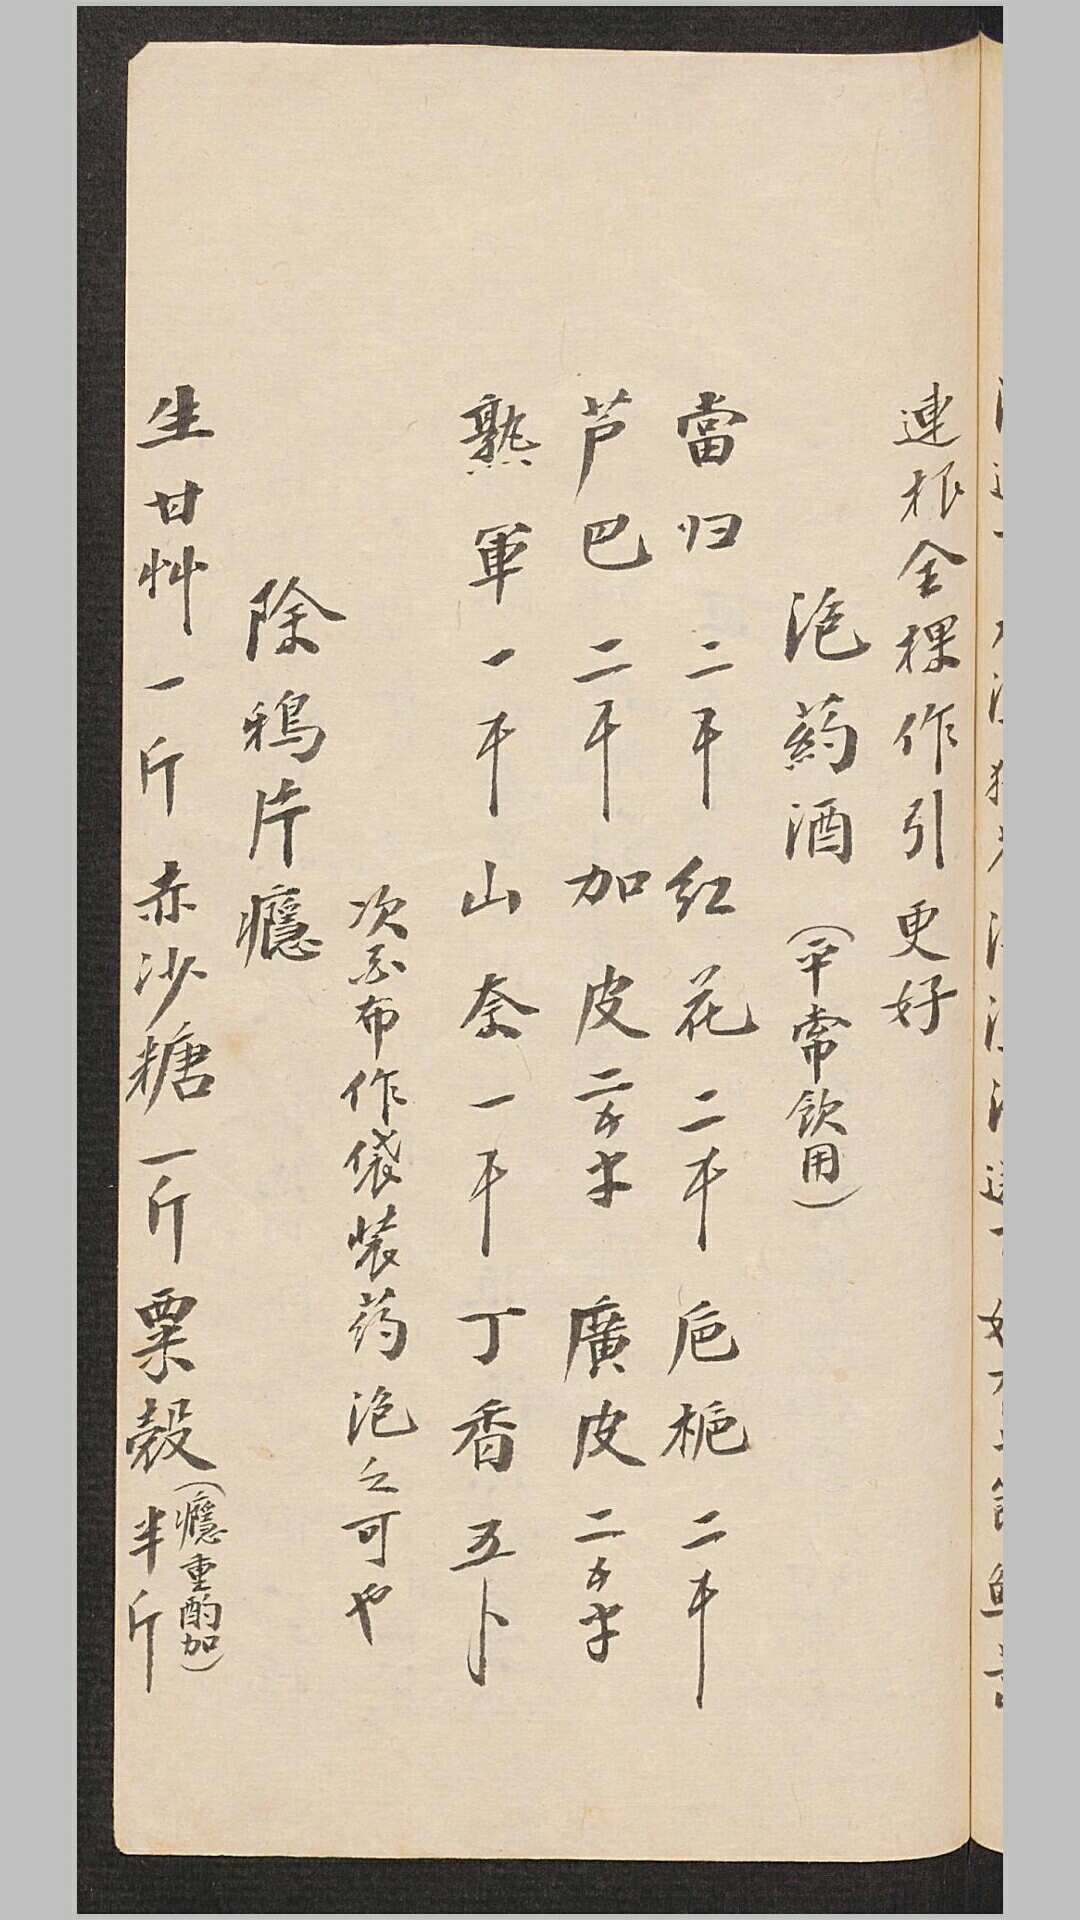 連根全棵作引更好
泡药酒(平常飲用)
當归二干红花二干卮栀二干
芦巴二干加皮二廣皮二
熟軍一干山奈一干丁香五卜
次布作袋装药泡之可也
除鴉片癮
生甘艸一斤赤沙糖一斤粟殼半斤(癮重酌加)